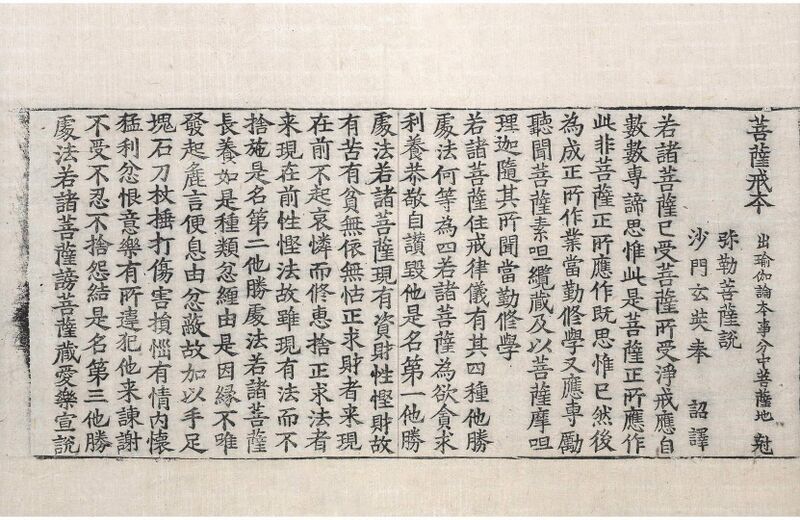 菩薩戒本 出瑜伽論本事分中菩薩地 尅
弥勒菩薩說
沙門玄奘奉 詔譯
若諸菩薩已受菩薩所受淨戒應自
數數專諦思惟此是菩薩正所應作
此非菩薩正所應作既思惟已然後
為成正所作業當勤修學又應專勵
聽聞菩薩素呾纜藏及以菩薩摩呾
理迦隨其所聞當勤修學
若諸菩薩住戒律儀有其四種他勝
處法何等為四若諸菩薩為欲貪求
利養恭敬自讚毀他是名第一他勝
處法若諸菩薩現有資財性慳財故
有苦有貧無依無怙正求財者來現
在前不起哀憐而修惠捨正求法者
来現在前性慳法故雖現有法而不
捨施是名第二他勝處法若諸菩薩
長養如是種類忿纏由是因緣不唯
發起麁言便息由忿蔽故加以手足
塊石刀杖捶打傷害損惱有情內懷
猛利忿恨意樂有所違犯他来諫謝
不受不忍不捨怨結是名第三他勝
處法若諸菩薩謗菩薩藏愛樂宣說